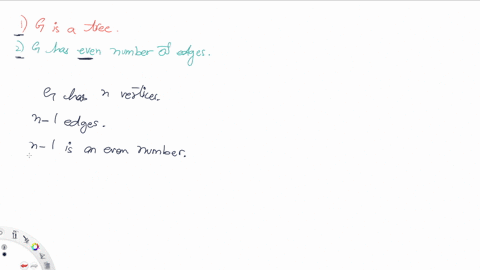 1) G is a tree.
2) G has even number of edges.
G has n vertices.
n-1 edges.
n-1 is an even number.